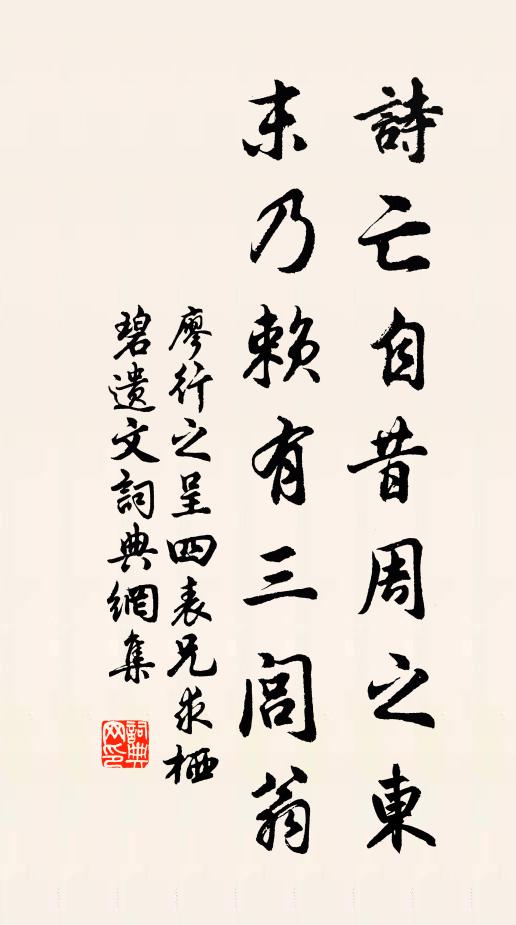 詩亡自昔周之東
末乃賴有三閭翁
廖行之呈四表兄求栖
碧遺文詞典網集
詞典網印